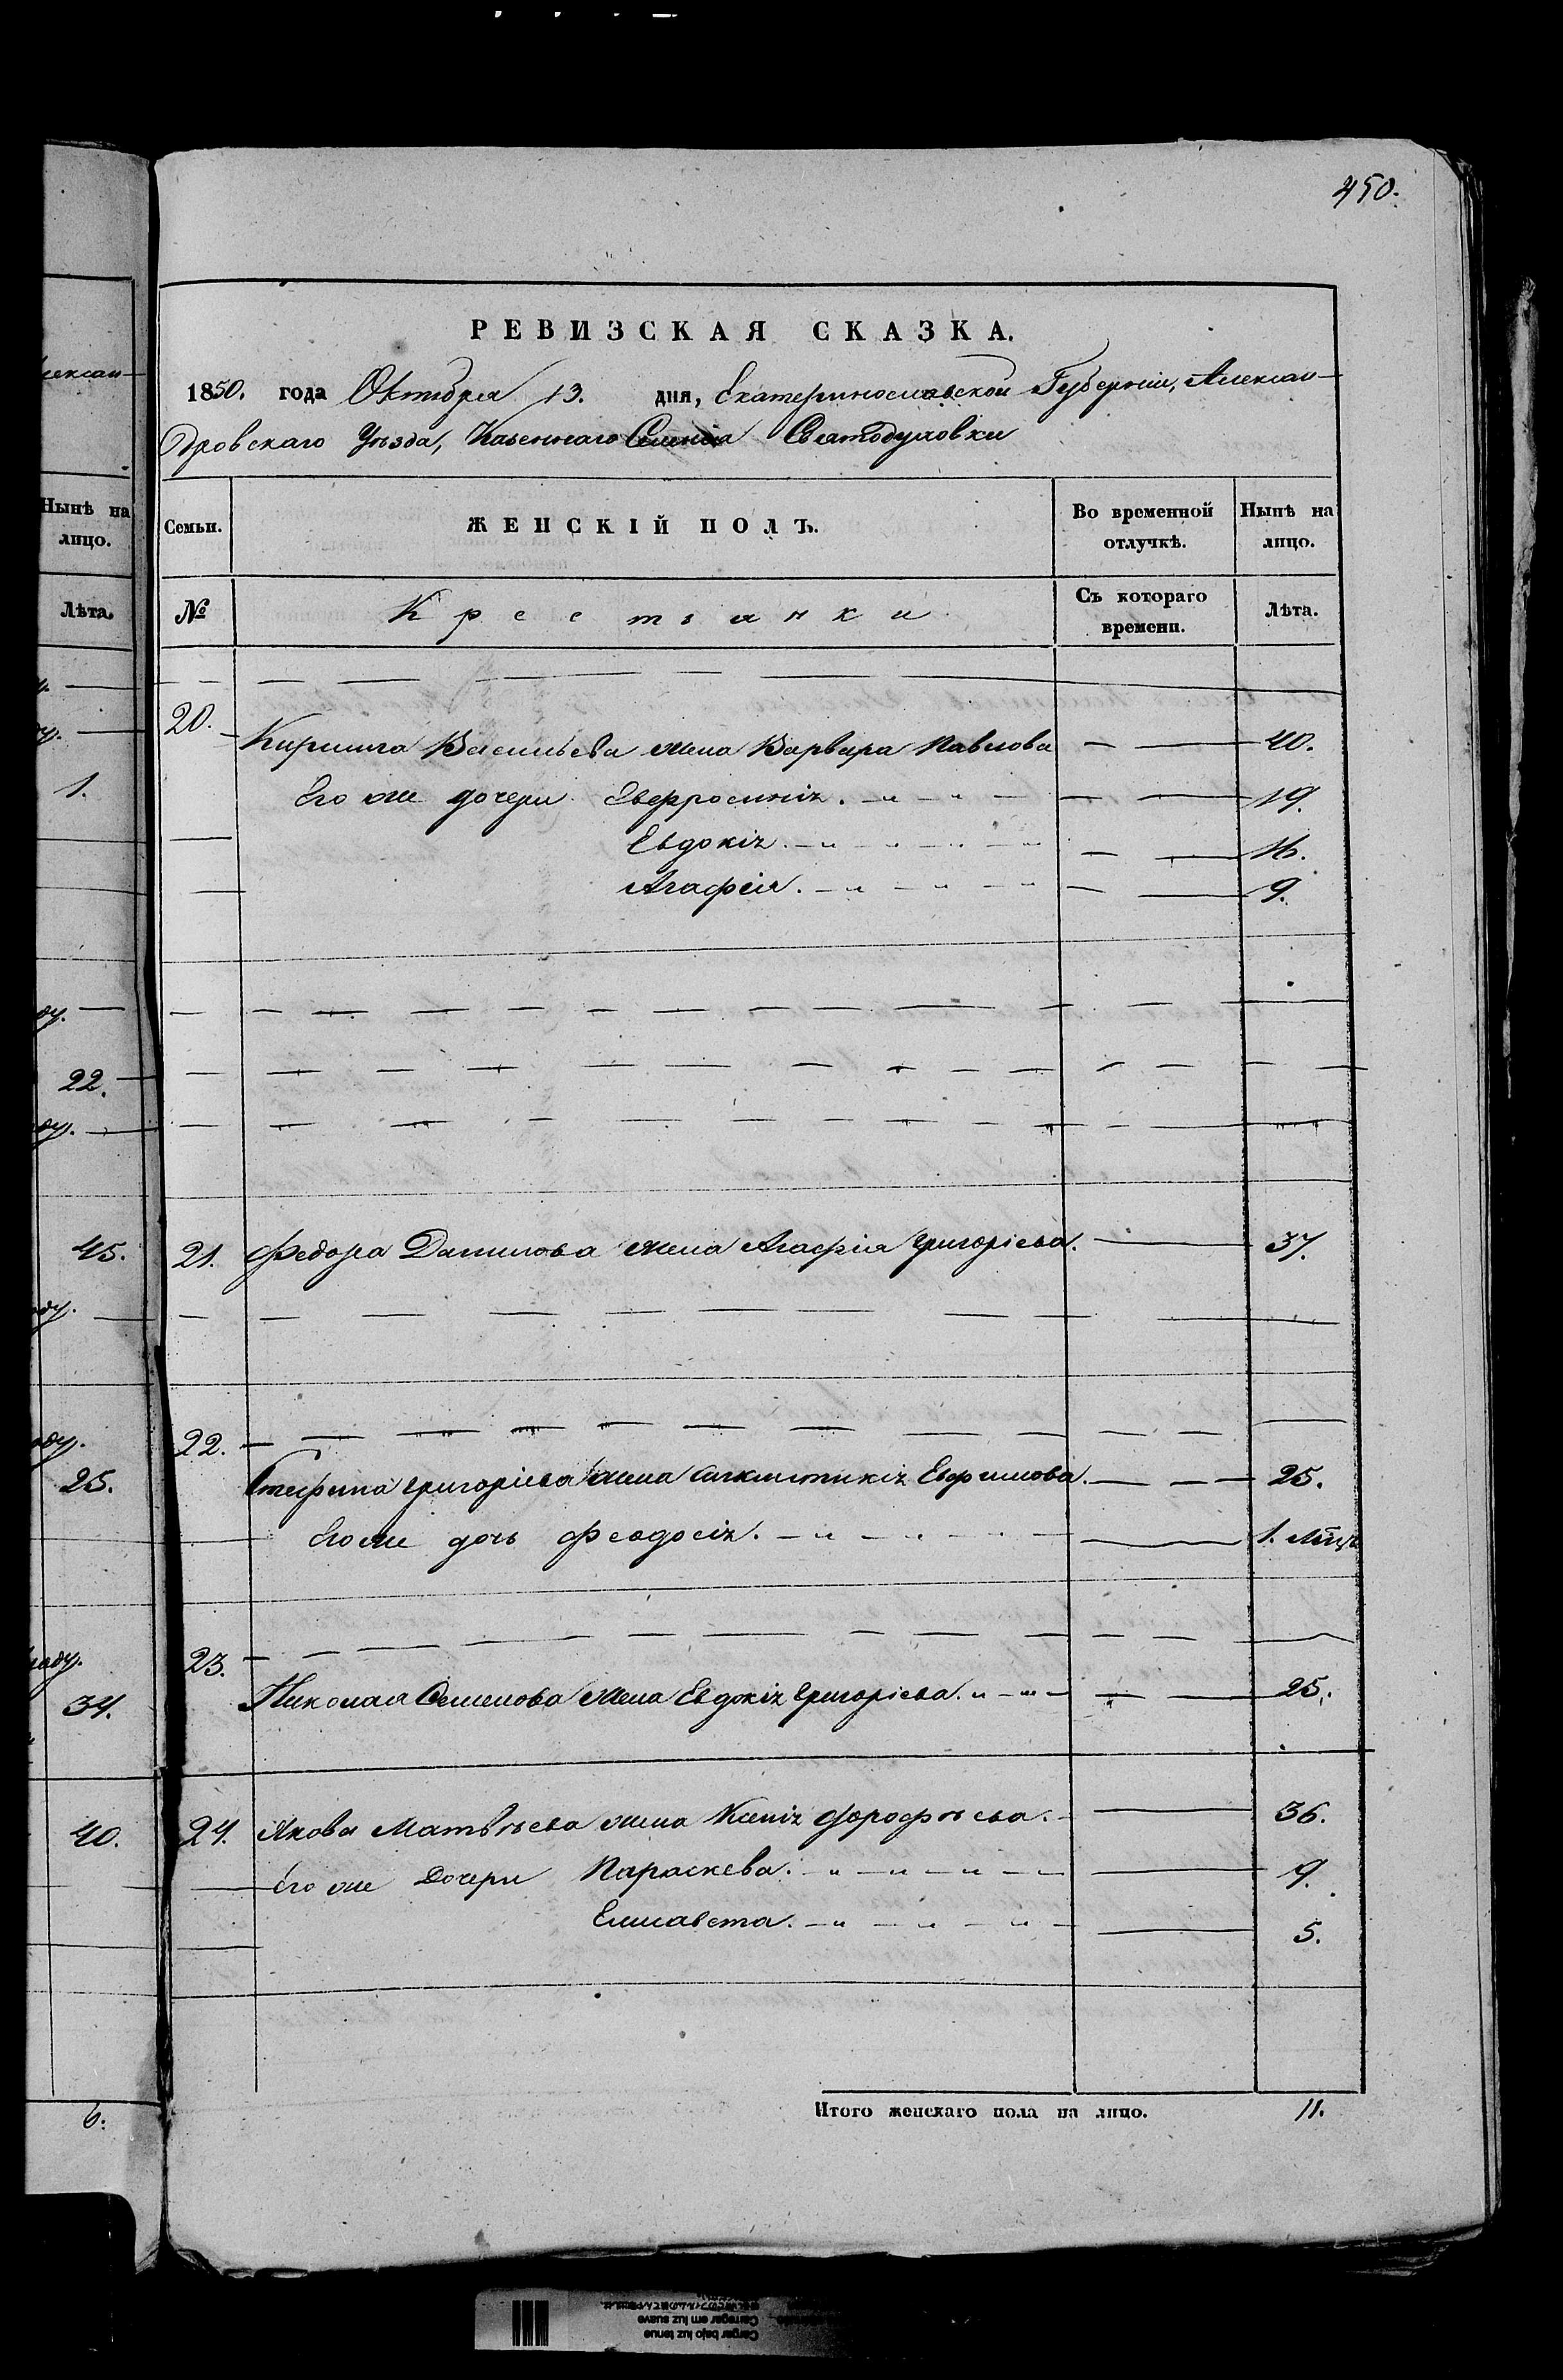 450.
РЕВИЗСКАЯ СКАЗКА.
1850. года Октября 13. дня, Екатеринославской Губерніи, Алексан-
дровскаго Уѣзда, Казеннаго Селенія Святодуховки
Семьи.
ЖЕНСКІЙ ПОЛЪ.
Во временной отлучкѣ.
Нынѣ на лицо.
№
Крестьянки
Съ котораго времени.
Лѣта.
20. Кирилла Васильева жена Варвара Павлова — 40.
Его же дочери Евфросинія. — 19.
Евдокія. — 16.
Агафія. — 9.
21. Федора Данилова жена Агафія Григорієва. — 37.
22.
Стефана Григоріева жена Евфимова. — 25.
Его же дочь Феодосія. — 1. мѣц.
23.
Николая Семенова жена Евдокія Григоріева. — 25.
24. Якова Матвѣева жена Ксенія — 36.
Его же Дочери Параскева. — 9.
Елисавета. — 5.
Итого женскаго пола на лицо. 11.
Алексан-
Нынѣ на лицо.
Лѣта.
1.
22.
45.
25.
34.
40.
6.